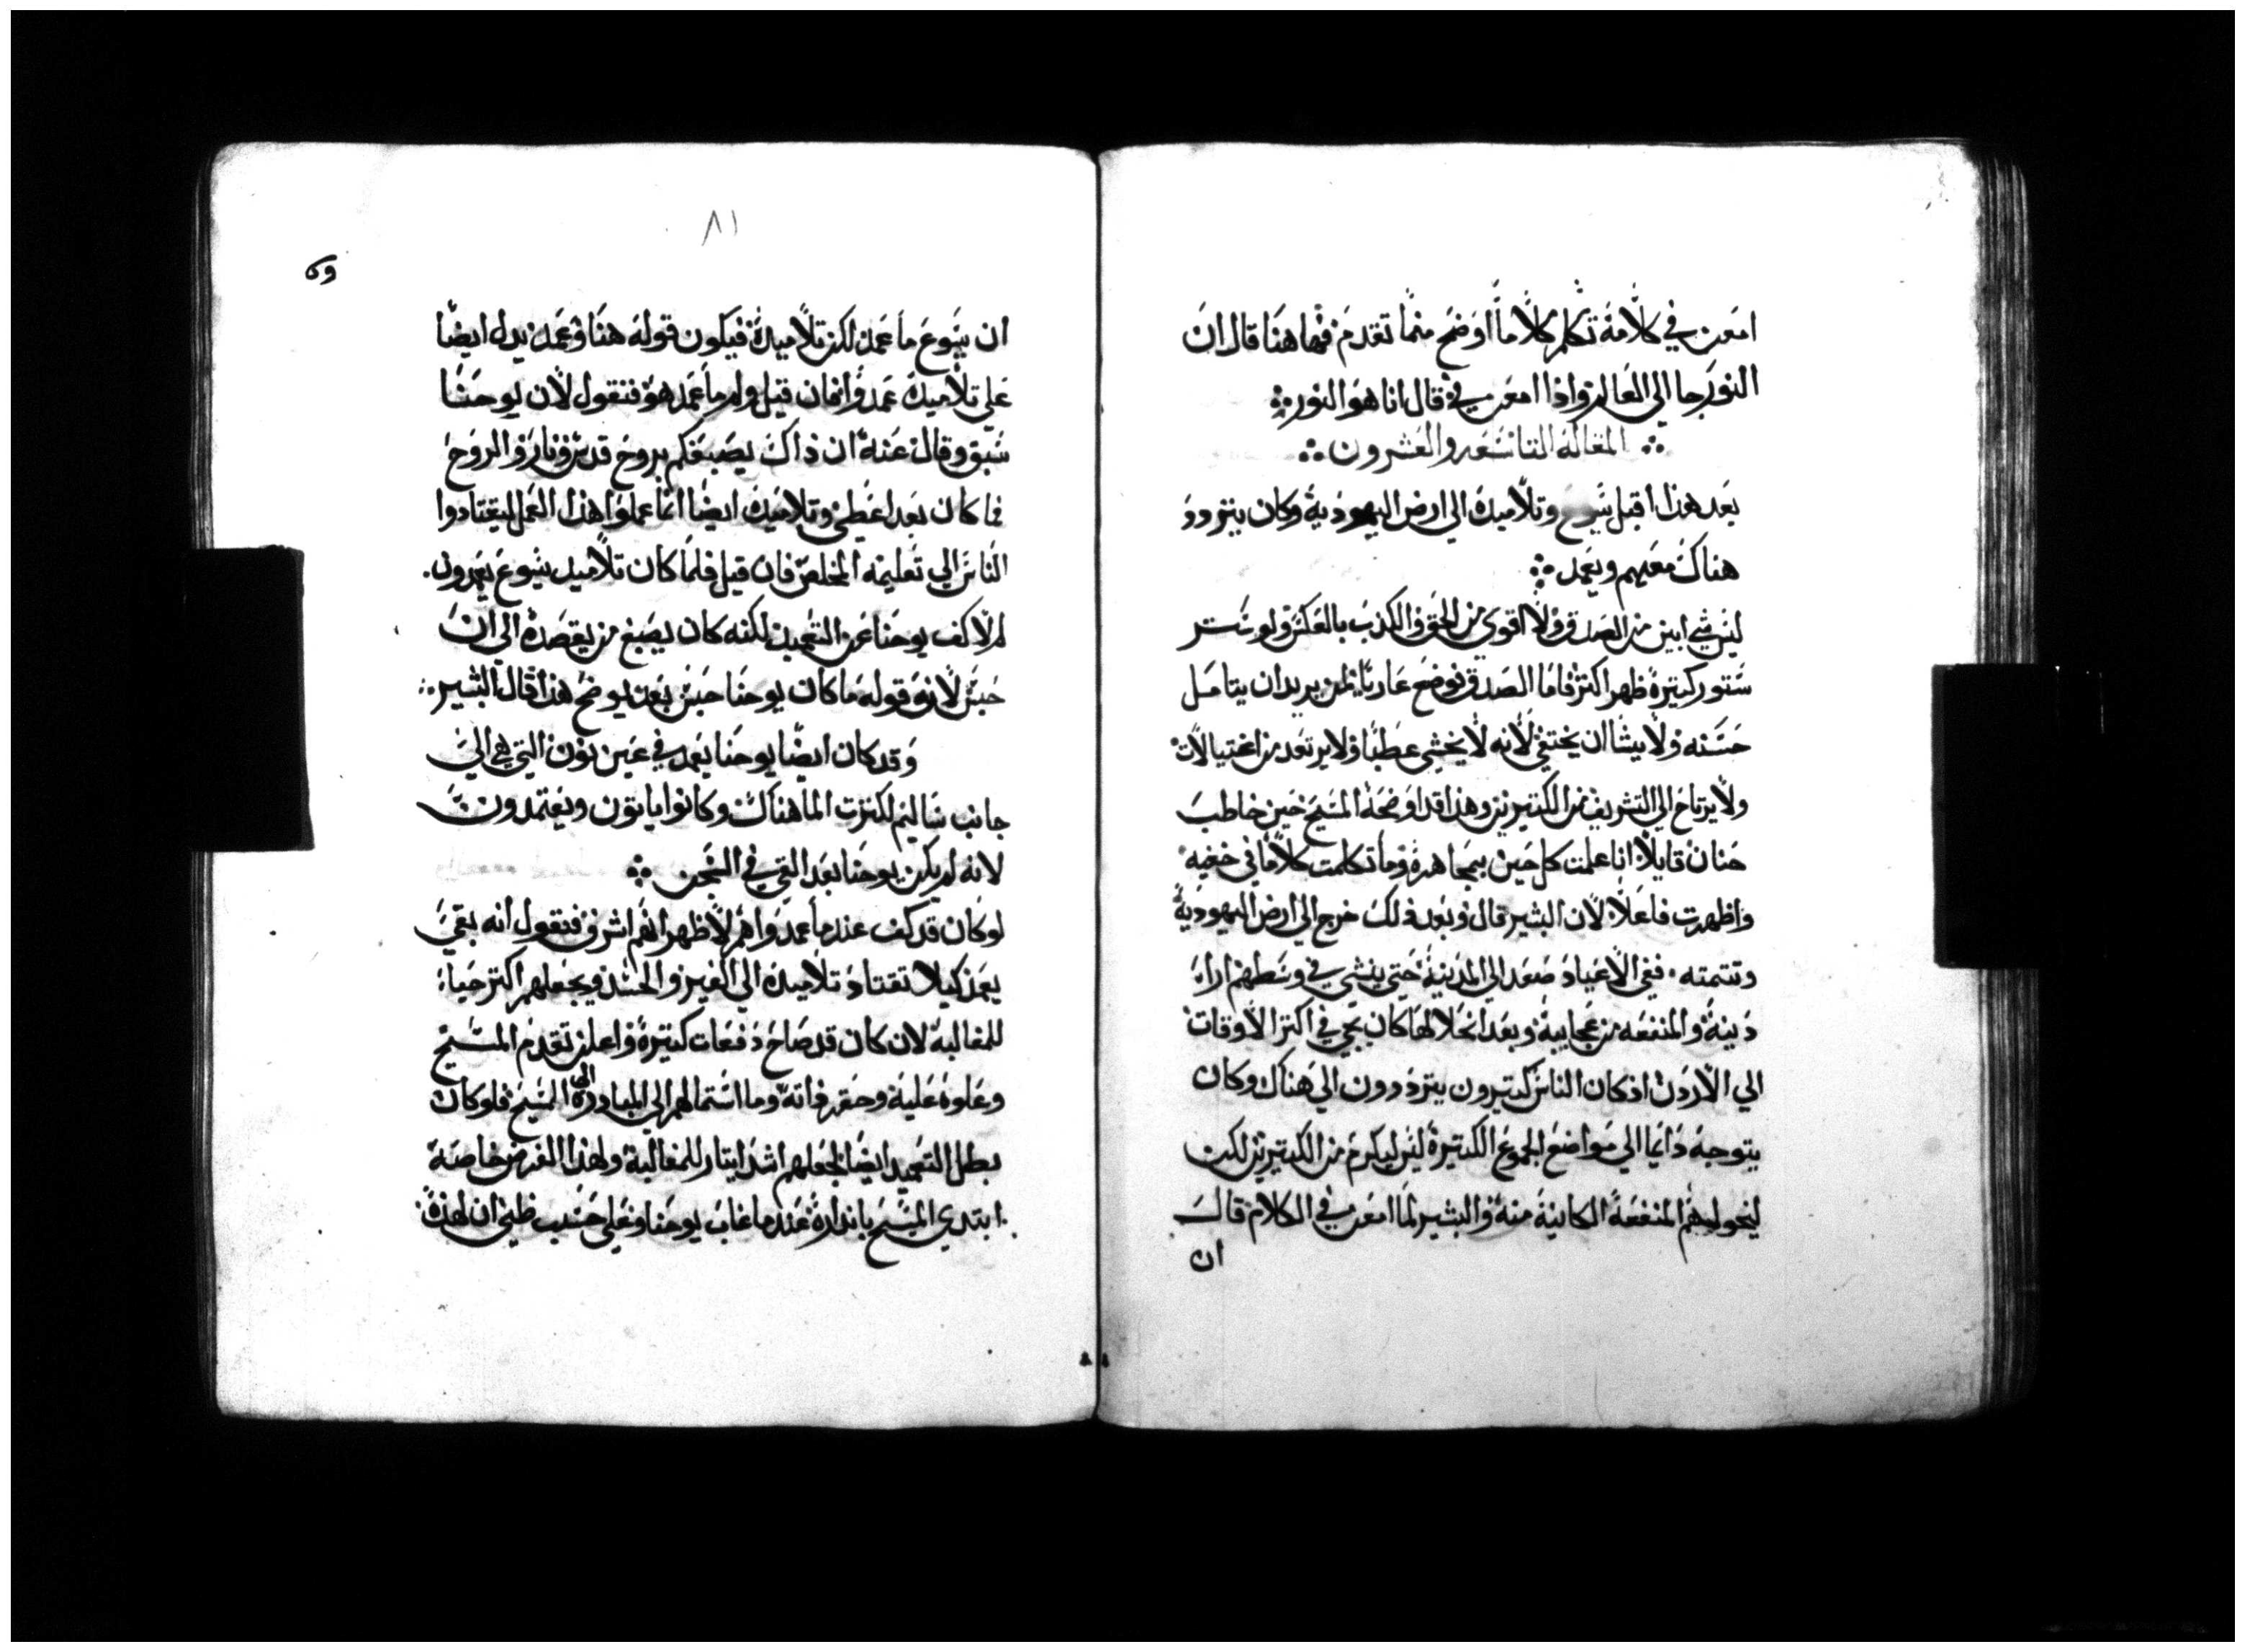 امعن في كلامه تكلم كلاماً اوضح منما تقدم فهاهنا قال ان
النور جا الي العالم واذا امعن في قال انا هو النور
المقاله التاسعه والعشرون
بعد هذا اقبل يسوع وتلاميذه الي ارض اليهودية وكان يتردد
هناك معهم ويعمد
ليس شي ابين من الصدق ولا اقوي من الحق والكذب بالعكس ولو ستر
ستور كتيرة ظهر اكتر فاما الصدق فوضع عارياً لمن يريد ان يتامل
حسنه ولا يشا ان يختفي لانه لا يخشي عطباً ولا يرتعد من اغتيالات
ولا يرتاح الي التشريف من الكتيرين وهذا قد اوضحه المسيح حين خاطب
حنان قايلاً انا علمت كل حين بمجاهرة وما تكلمت كلاماً في خفيه
واظهرت فاعلاً لان البشير قال وبعد ذلك خرج الي ارض اليهودية
وتتمته ففي الاعياد صعد الي المدينة حتي ينشي في وسطهم اراء
دينة والمنفعه من عجايبة وبعد انحلالها كان يجي في اكتر الاوقات
الي الاردن اذ كان الناس كتيرون يترددون الي هناك وكان
يتوجه دايما الي مواضع الجموع الكتيرة ليس ليكرم من الكتيرين لكن
ليخولهم المنفعة الكاينة منه والبشير لما امعن في الكلام قال
ان
٨١
ان يسوع ما عمد لكن تلاميذه فيكون قوله هنا وعمد يدل ايضاً
علي تلاميذه عمدوا فان قيل ولم ما عمد هو فنقول لان يوحنا
سبق وقال عنه ان ذاك يصبغكم بروح قدس ونار والروح
فما كان بعد اعطي وتلاميذه ايضاً انما عملوا هذا العمل ليقتادوا
الناس الي تعليمه المخلص فان قيل فلما كان تلاميذ يسوع يعمدون
لم لا كف يوحنا عن التعميد لكنه كان يصبغ من يقصده الي ان
حبس لانه قوله ما كان يوحنا حبس بعد يوضح هذا قال البشير
وقد كان ايضاً يوحنا يعمد في عين نون التي هي الي
جانب ساليم لكترت الما هناك وكانوا ياتون ويعتمدون
لانه لم يكن يوحنا بعد القي في السجن
لو كان قد كف عندما عمدوا هم لاظهر انهم اشرف فنقول انه بقي
يعمد كيلا تقتاد تلاميذه الي الغير والحسد ويجعلهم اكتر حياء
للمغالبة لان كان قد صاح دفعات كتيرة واعلن تقدم المسيح
وعلوه عليه وحقر ذاته وما استمالهم الي المبادرة الي المسيح فلو كان
بطل التعميد ايضاً لجعلهم اشد ايتار للمغالبة ولهذا الغرض خاصة
ابتدي المسيح بانداره عندما غاب يوحنا وعلي حسب ظني ان لهذه